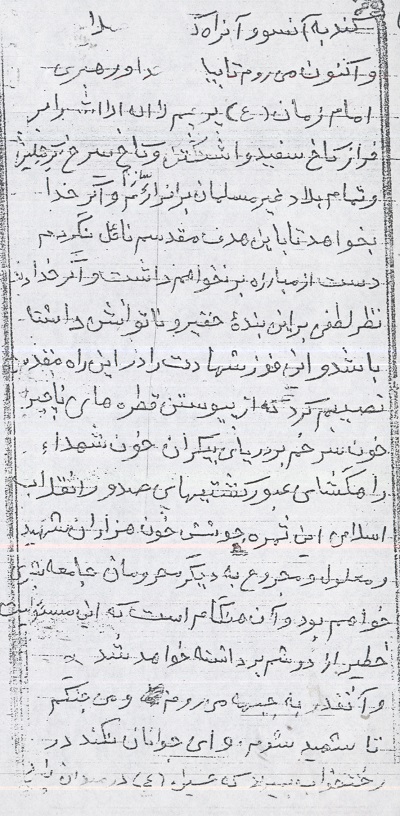 کند به آنسو و آنراه
و اکنون می روم تا با داوری
امام زمان (ع) پرچم لا اله الا الله را بر
فراز کاخ سفید واشنگتن و کاخ سرخ
و تمام بلاد غیر مسلمان برافرازیم و اگر خدا
بخواهد تا با این هدف مقدسم نائل نگردم
دست از مبارزه بر نخواهم داشت و اگر خداوند
نظر لطفی بر این بندهٔ حقیر و ناتوانش داشته
باشد و این فوز شهادت را در این راه مقدس
نصیبم کرد که از پیوستن قطره های ناچیز
خون سرخم بر دریای بیکران خون شهداء
راهگشای عبور کشتیهای صدور انقلاب
اسلامی این ثمره جوشش خون هزاران شهید
و معلول و مجروح به دیگر محرومان جامعه بشری
خواهم بود و آن هنگام است که این مسئولیت
خطیر از دوشم برداشته خواهد شد
و آنقدر به جبهه می روم و می جنگم
تا شهید شوم. و ای جوانان نکند در
رختخواب بمیرید که حسین (ع) در میدان